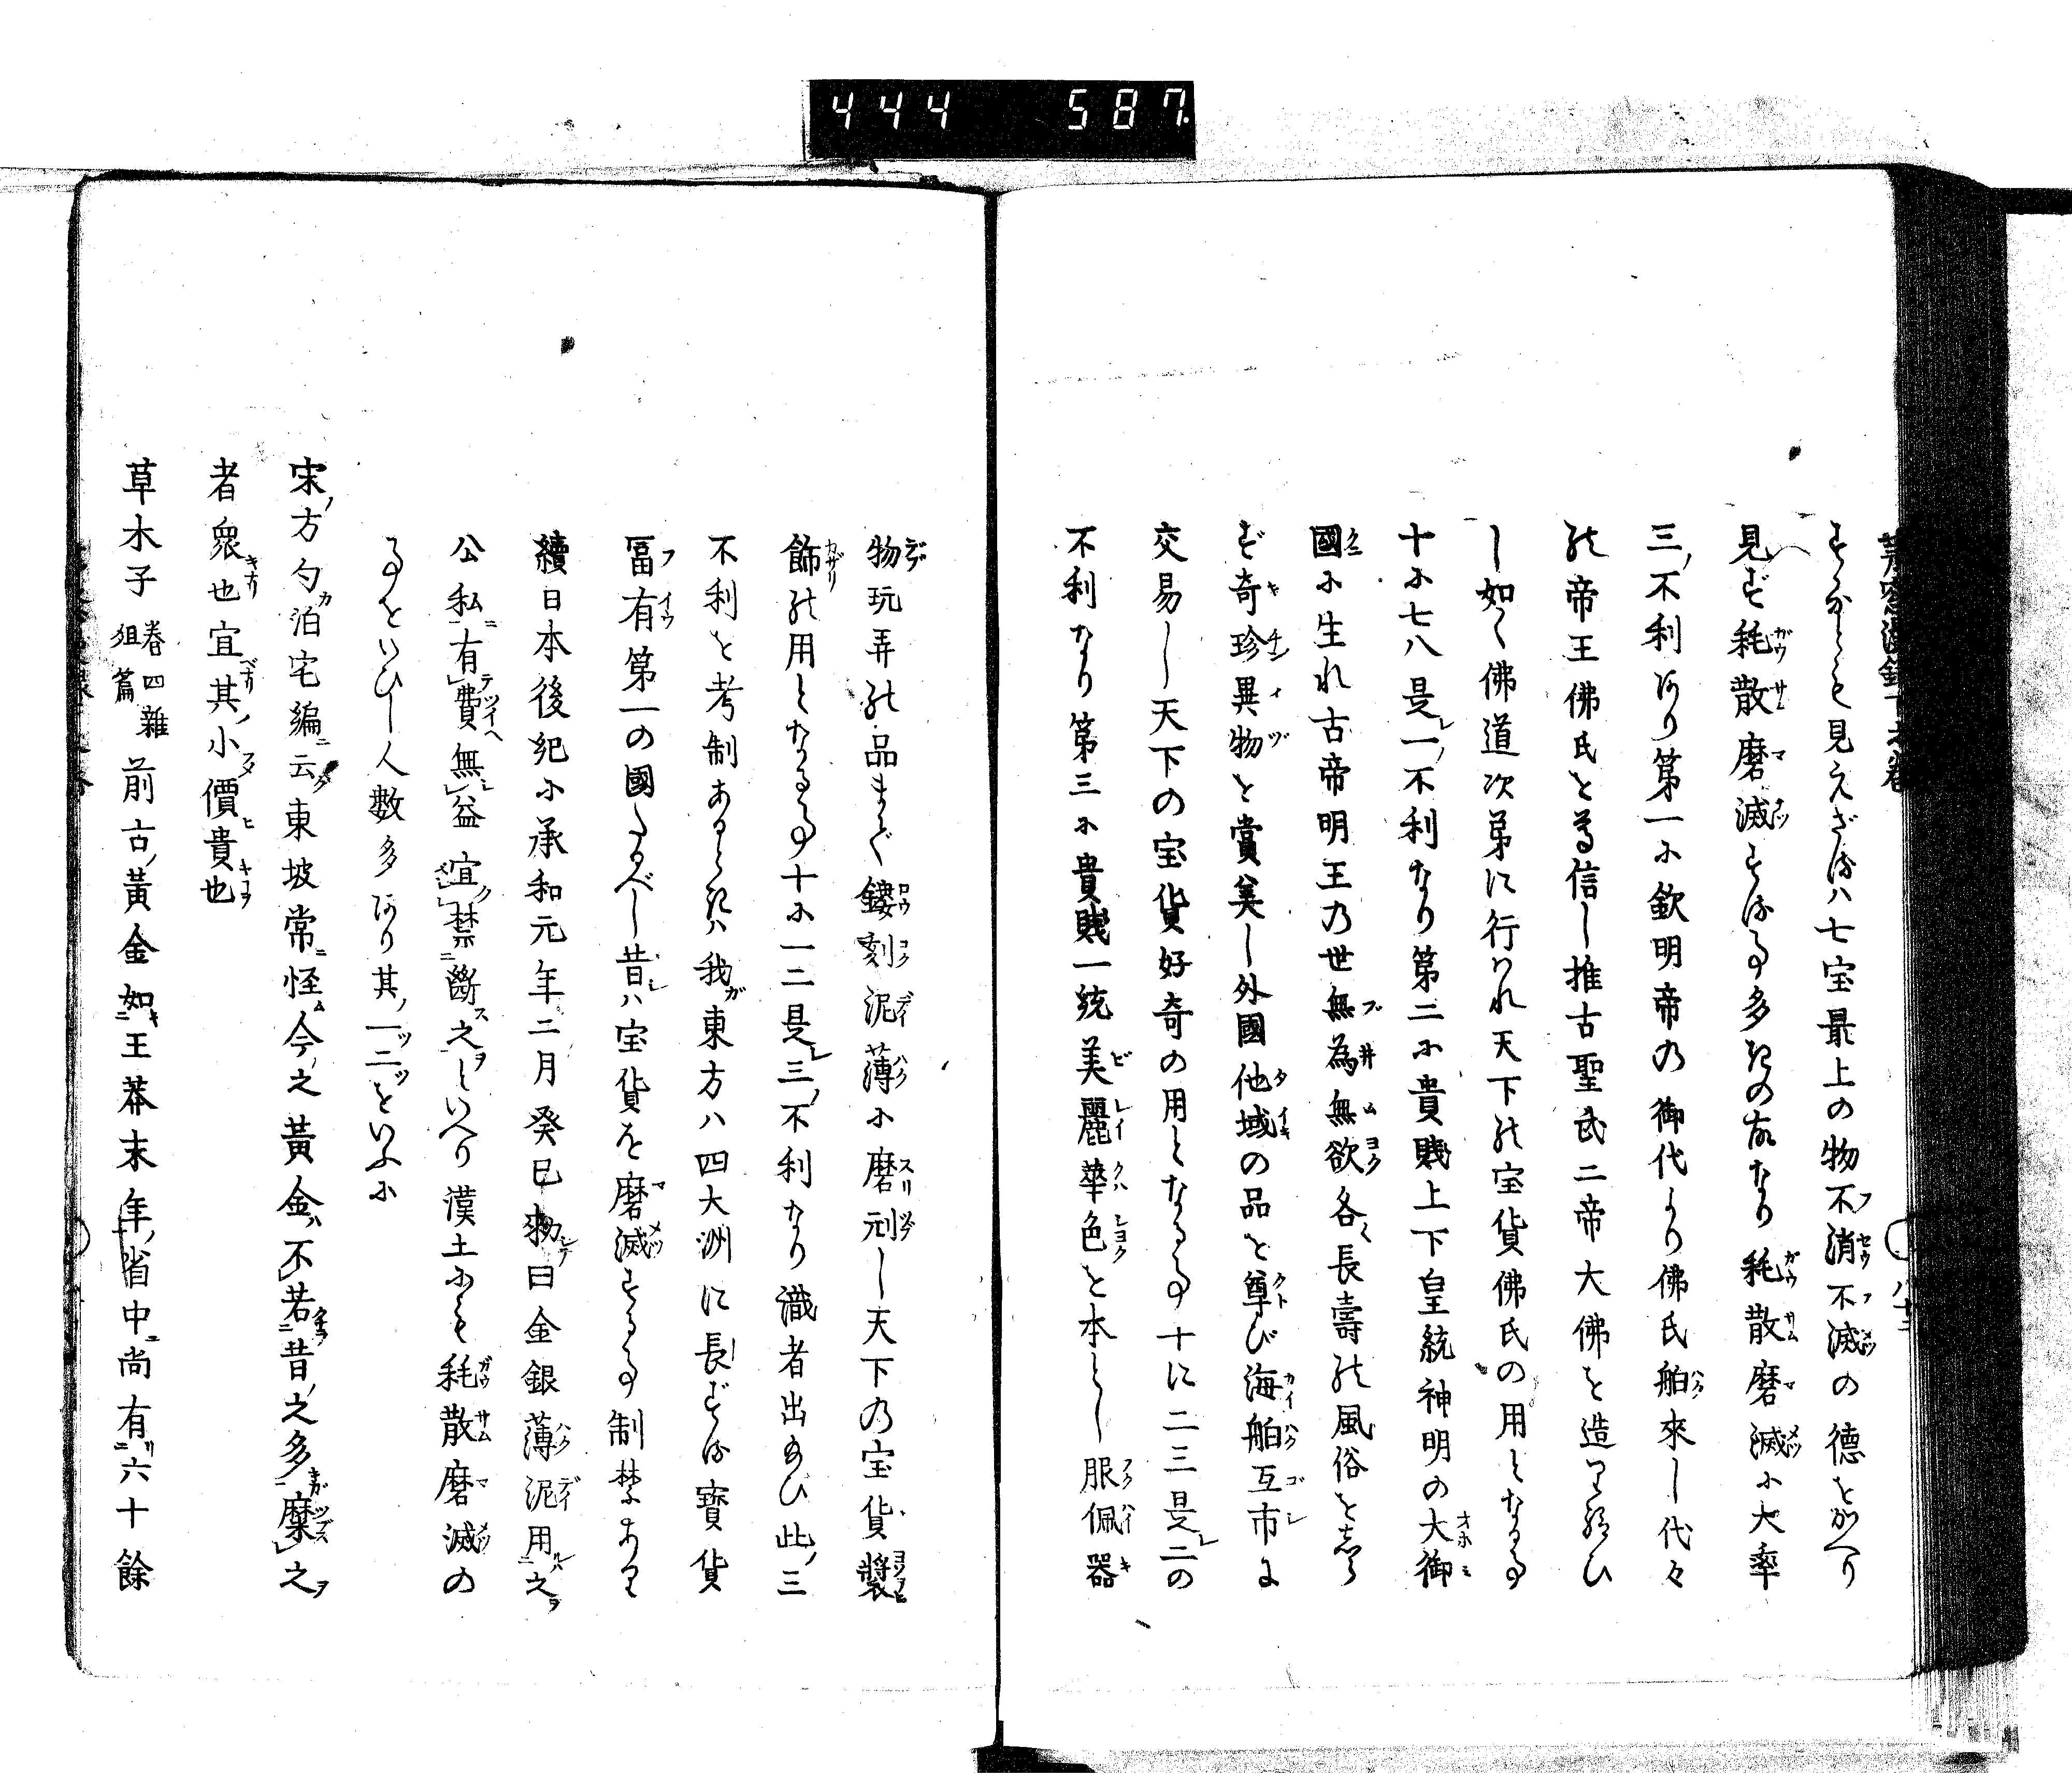 444 587
すかとも見えざるハ七宝最上の物不消不滅の徳をかへり
見ず耗散磨滅する事多きの故なり耗散磨滅に大率
三ノ不利あり第一に欽明帝の御代より佛氏舶來し代々
の帝王佛氏を尊信し推古聖武二帝大佛を造り給ひ
し如く佛道次第に行はれ天下の宝貨佛氏の用となる事
十に七八是レ一ノ不利なり第二に貴賤上下皇統神明の大御
國に生れ古帝明王の世無為無欲各々長壽の風俗を忘
ず奇珍異物を賞美し外國他域の品を尊び海舶互市に
交易し天下の宝貨好奇の用となる事十に二三是レ二の
不利なり第三に貴賤一統美麗華色を本とし服佩器
物玩弄の品まで鏤刻泥薄に磨刓し天下の宝貨糚
飾の用となる事十に一二是レ三ノ不利なり識者出あひ此ノ三
不利を考制あるときハ我東方ハ四大洲に長ずる寶貨
冨有第一の國たるべし昔シハ宝貨を磨滅する事制禁あり
續日本後紀に承和元年二月癸巳勅シテ曰金銀薄泥用ルニ之ヲ
公私ニ有テ費ツイヘ無シ益宜ク禁斷ス之ヲといへり漢土にも耗散磨滅の
事をいひし人數多あり其ノ一ツ二ツをいふに
宋ノ方勺カ泊宅編ニ云ク東坡常ニ怪ム今ノ之黃金ハ不若昔ノ之多糜之ヲ
者衆也宜其ノ小價貴也
草木子 卷四雜俎篇 前古ノ黃金如キ王莽末年ノ省中ニ尚有リ六十餘